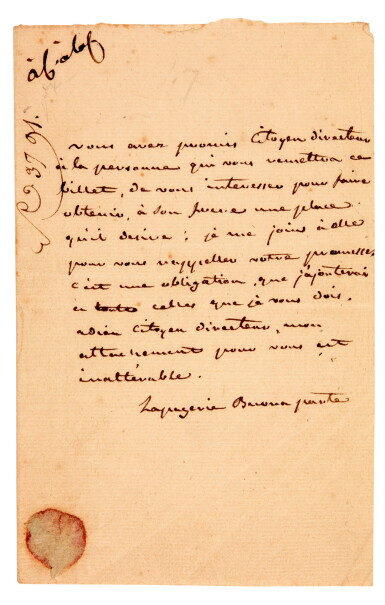 vous avez promis Citoyen directeur
à la personne qui vous remettra ce
billet, de vous interesser pour faire
obtenir, à son frere une place
qu'il desire; je me joins à elle
pour vous rappeller votre promesse,
c'est une obligation, que j'ajouterai
à toutes celles que je vous dois,
adieu Citoyen directeur, mon
attachement pour vous est
inaltérable.
Lapagerie Buonaparte